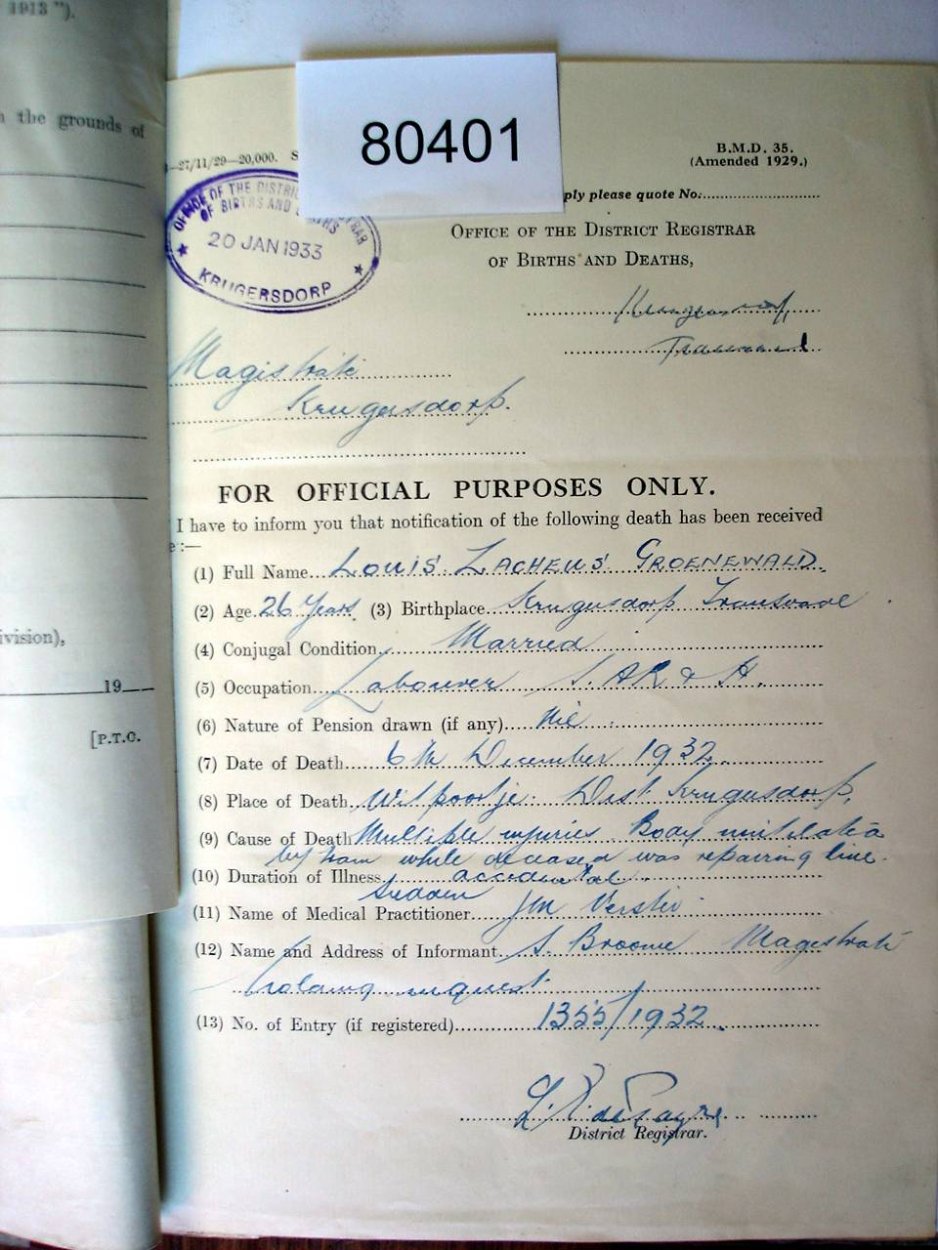 1913 ").
n the grounds of
ivision),
19
[P.T.O.
80401
—27/11/29—20,000. S
B.M.D. 35.
(Amended 1929.)
ply please quote No:
OFFICE OF THE DISTRI RAR
OF BIRTHS AND
20 JAN 1933
KRUGERSDORP
OFFICE OF THE DISTRICT REGISTRAR
OF BIRTHS AND DEATHS,
Krugersdorp
Transvaal
Magistrate
Krugersdorp.
FOR OFFICIAL PURPOSES ONLY.
I have to inform you that notification of the following death has been received
e:—
(1) Full Name Louis Zacheus Groenewald.
(2) Age 26 Years (3) Birthplace Krugersdorp Transvaal
(4) Conjugal Condition Married
(5) Occupation Labourer S.A.R & H.
(6) Nature of Pension drawn (if any) Nil.
(7) Date of Death 6th December 1932.
(8) Place of Death Witpoortje. Dist Krugersdorp.
(9) Cause of Death Multiple injuries. Body mutilated
by train while deceased was repairing line.
(10) Duration of Illness accidental.
Sudden
(11) Name of Medical Practitioner
(12) Name and Address of Informant S. Broome Magistrate
holding inquest
(13) No. of Entry (if registered) 1355/1932.
District Registrar.